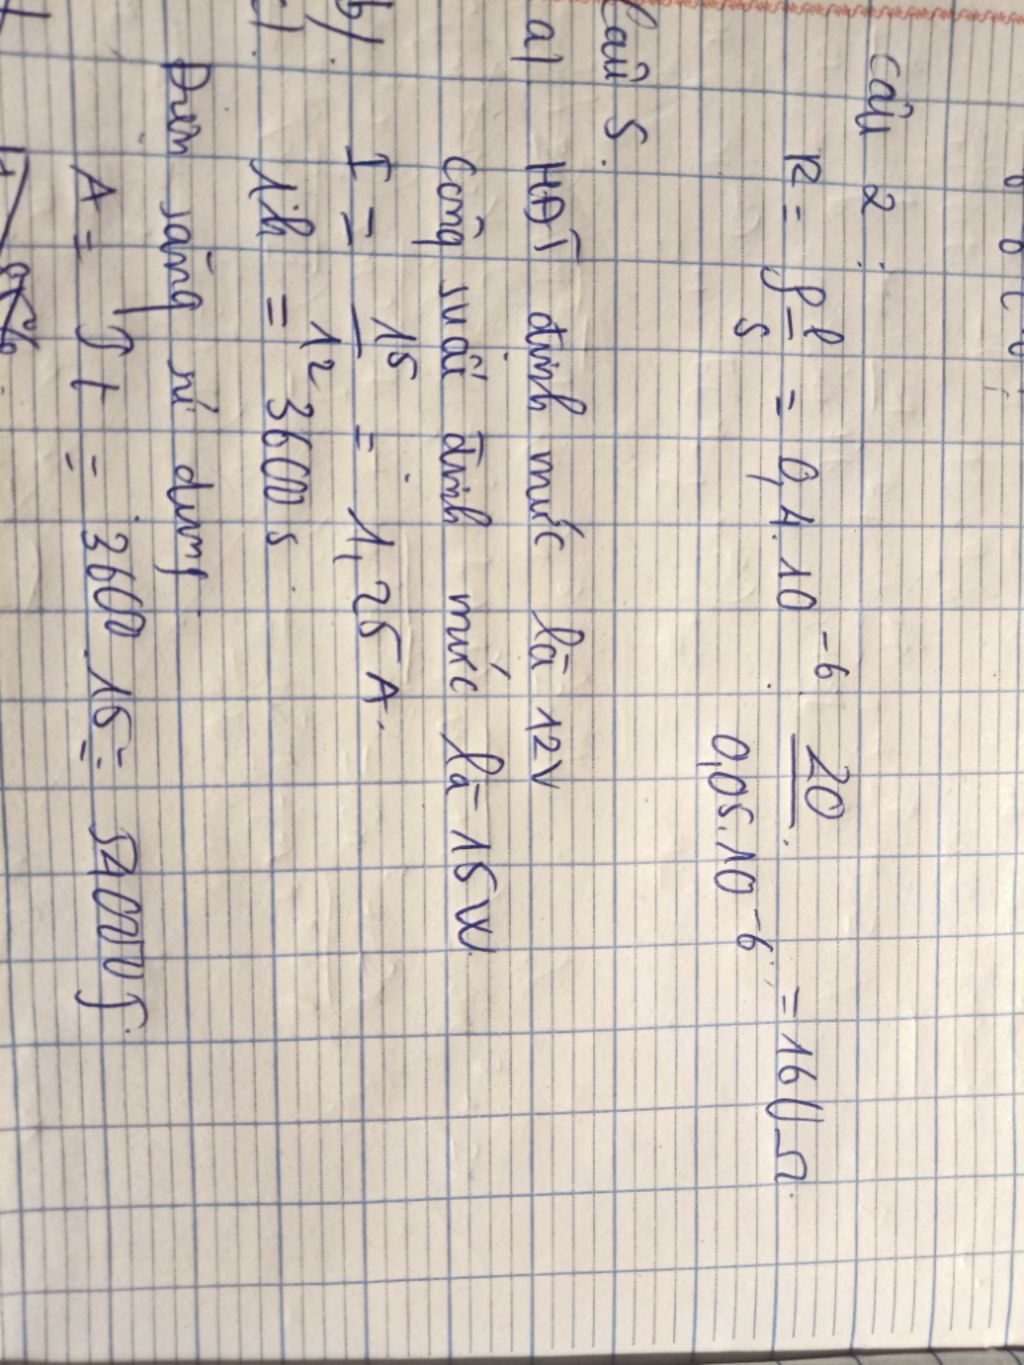 Câu 2:
R = ρ l/S = 0,4.10⁻⁶ 20/0,05.10⁻⁶ = 160 Ω.
Câu 5.
a) HĐT định mức là 12V
Công suất định mức là 15W
b) I = 15/12 = 1,25A.
c). 1h = 3600s
Đèn sáng
A = Pt = 3600.15 = 54000J.